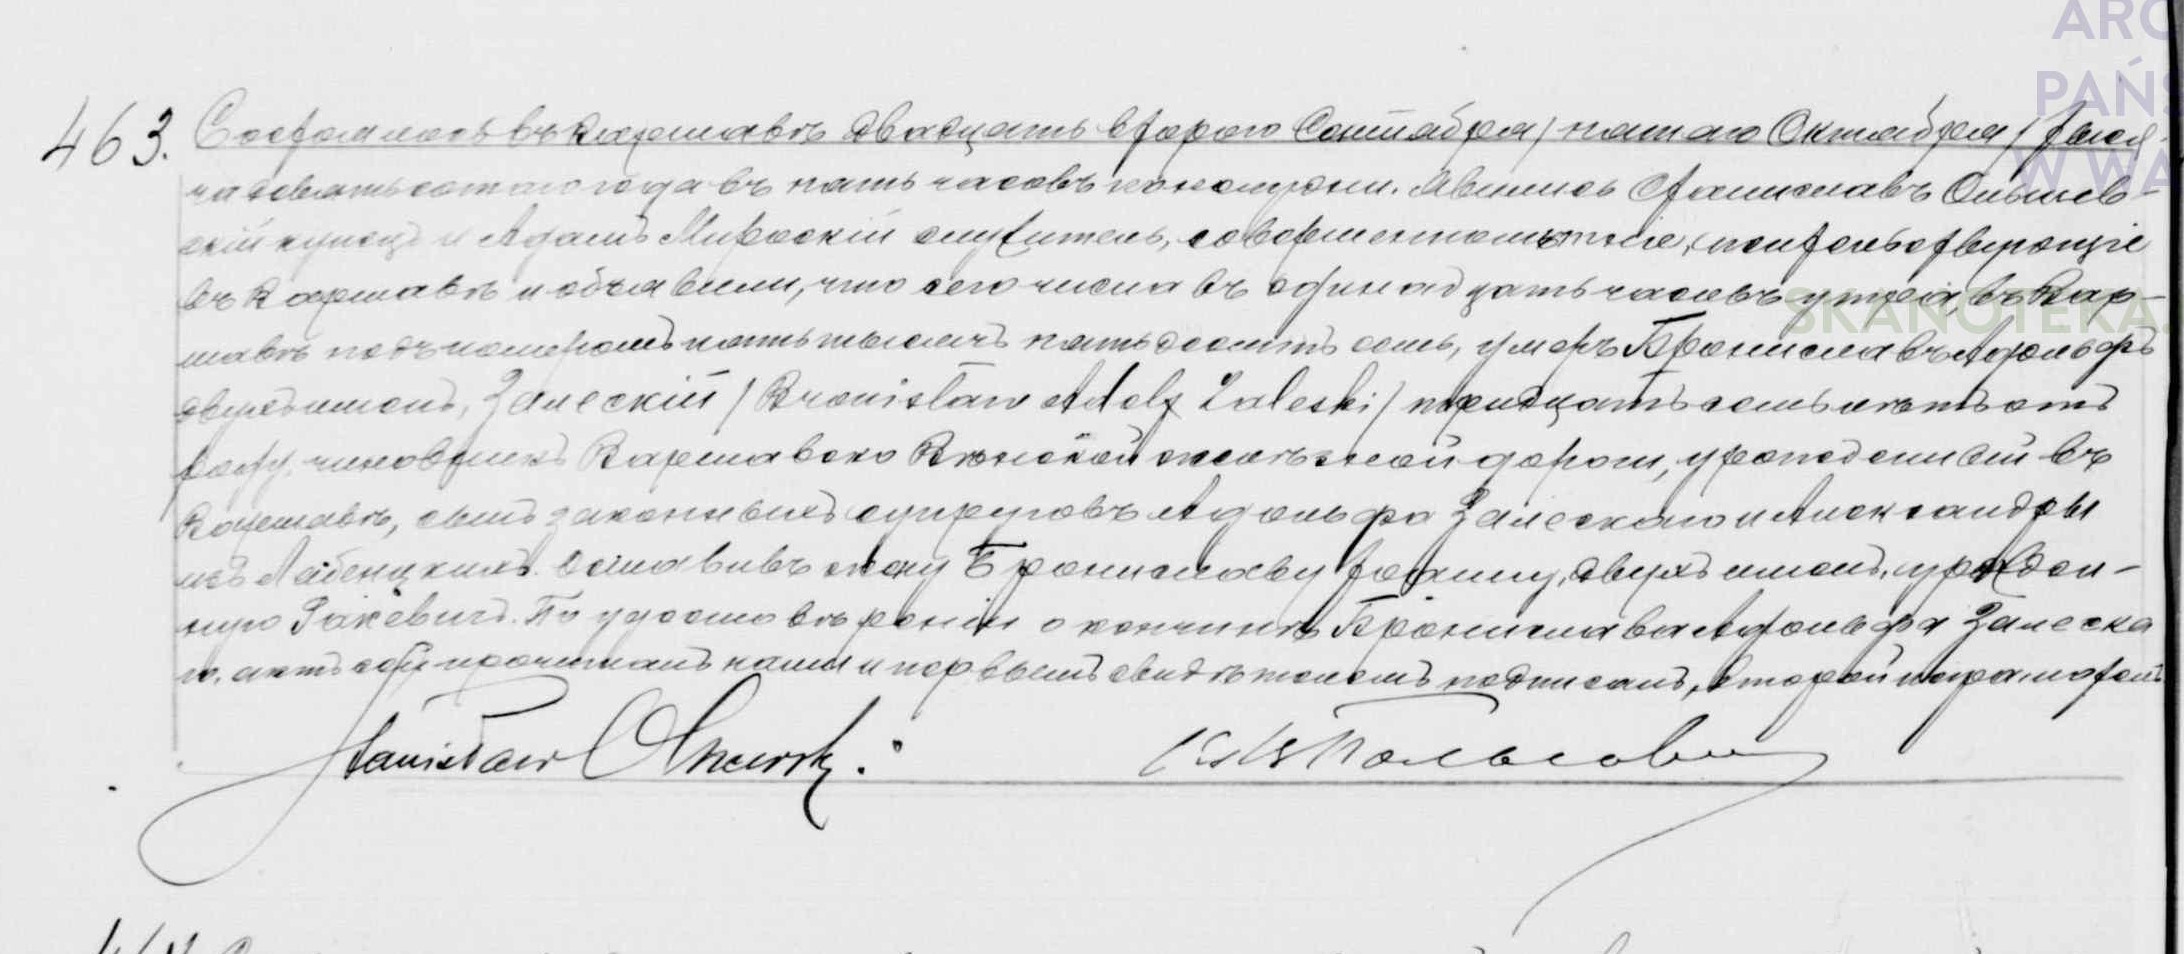 463. Состоялось въ Варшавѣ двадцать втораго Сентября / пятаго Октября / тыся-
ча девятьсотаго года въ пять часовъ пополудни. Явились Станиславъ Ольшев-
скій купецъ и Адамъ Мировскій служитель, совершеннолѣтніе, жительствующіе
въ Варшавѣ и объявили, что сего числа въ одинадцать часовъ утра, въ Вар-
шавѣ подъ номеромъ пять тысячъ пятьдесятъ семь, умеръ Брониславъ Адольфъ
двухъ именъ, Залескій / Bronisław Adolf Zaleski / тридцать семь лѣтъ отъ
роду, чиновникъ Варшавско Вѣнской желѣзной дороги, урожденный въ
Варшавѣ, сынъ законныхъ супруговъ Адольфа Залескаго и Александры
изъ Лабенцкихъ. Оставивъ жену Брониславу двухъ именъ, урожден-
ную По удостовѣреніи о кончинѣ Бронислава Адольфа Залеска
го, актъ сей прочитанъ нами и первымъ свидѣтелемъ подписанъ, второй неграмотенъ
Stanisław Olszewski.
ARC
PAŃS
W WA
SKANOTEKA.